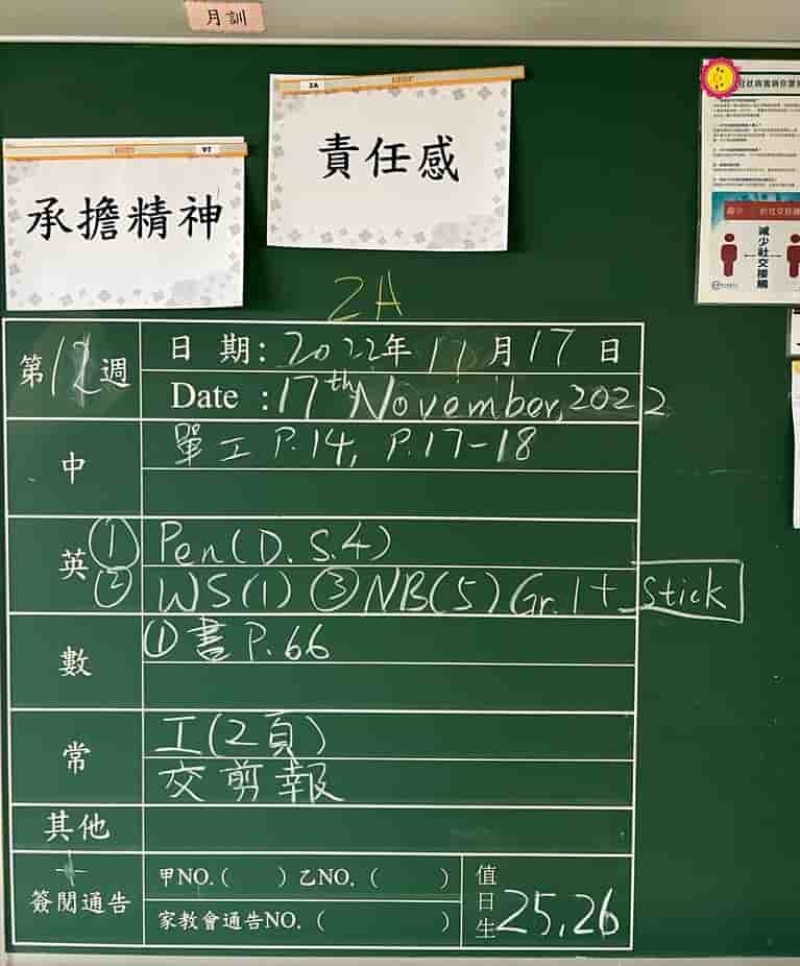 月訓
責任感
承擔精神
減少社交接觸
2A
第12週
日 期: 2022年 11月17日
Date : 17th November, 2022
中
單工 P.14, P.17-18
英
① Pen(D.S.4)
② WS(1) ③ NB(5) Gr.1+ Stick
數
① 書 P.66
常
工(2頁)
交剪報
其他
簽閱通告
甲NO.( ) 乙NO. ( )
家教會通告NO. ( )
值日生 25,26